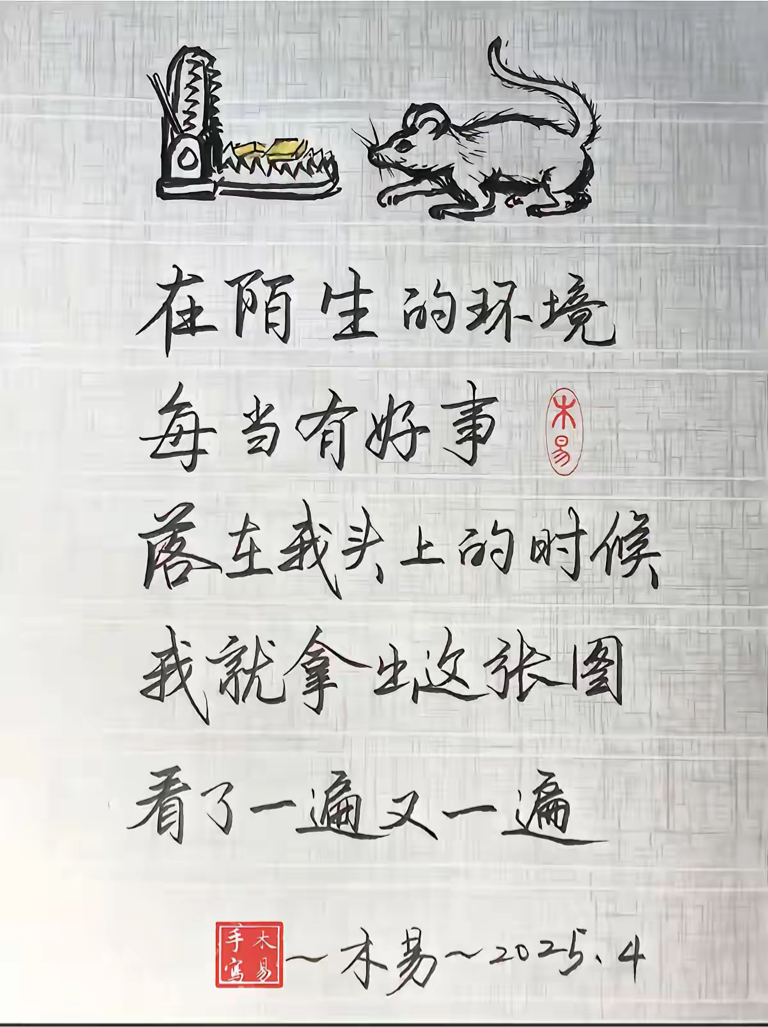 在陌生的环境
每当有好事
木易
落在我头上的时候
我就拿出这张图
看了一遍又一遍
木易手写
~木易~2025.4